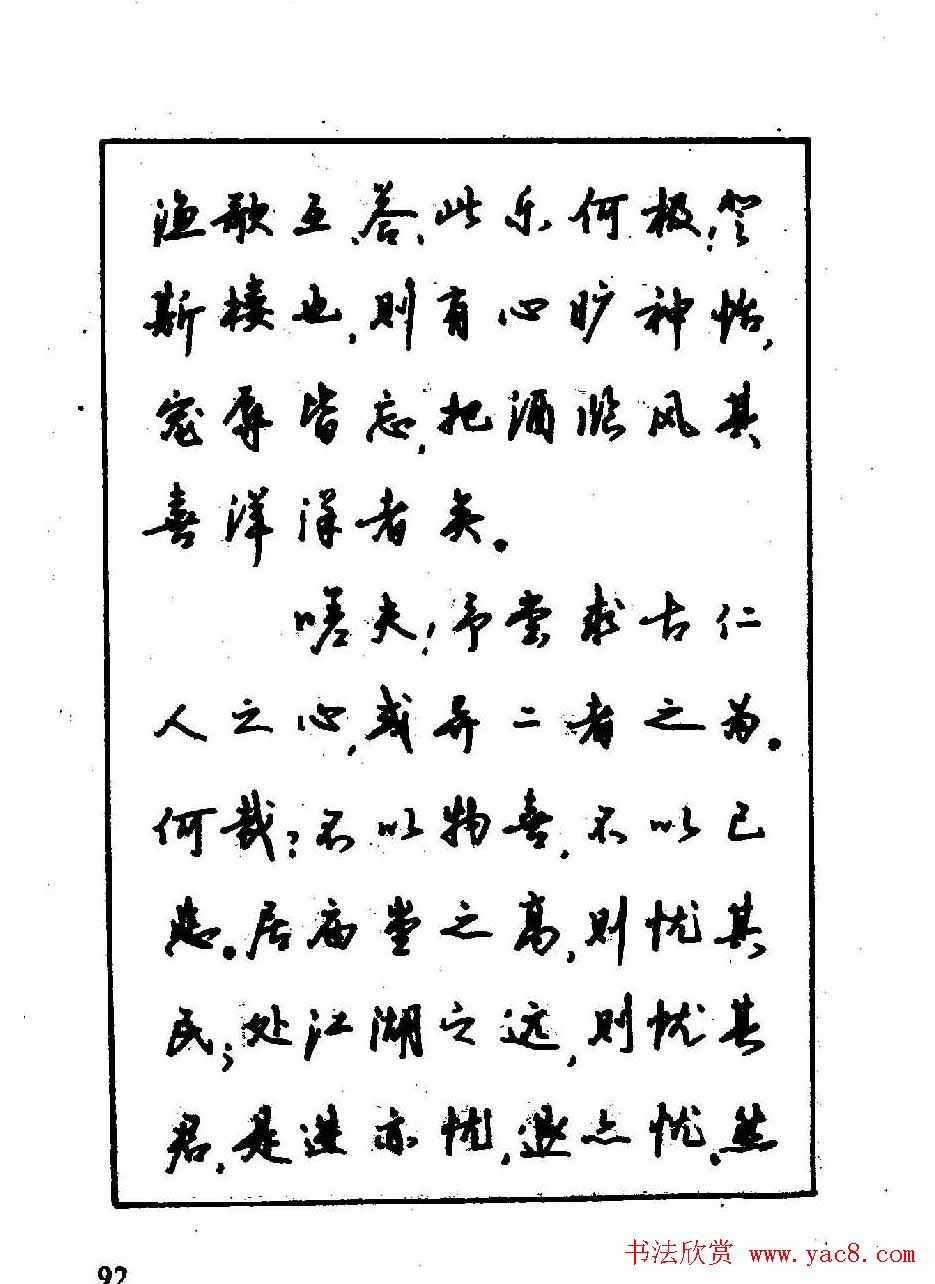 渔歌互答、此乐何极!登
斯楼也,则有心旷神怡,
宠辱皆忘,把酒临风其
喜洋洋者矣。
嗟夫!予尝求古仁
人之心,或异二者之为。
何哉?不以物喜,不以己
悲。居庙堂之高,则忧其
民;处江湖之远,则忧其
君,是进亦忧,退亦忧。然
92
书法欣赏 www.yac8.com